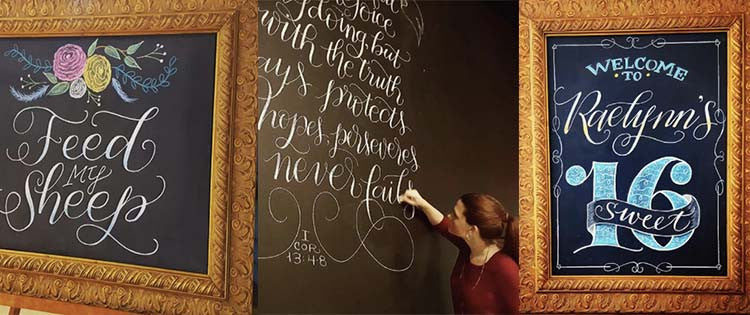 Feed
My
Sheep
rejoice
doing but
with the truth
ays protects
hopes, perseveres
never fails
I
COR
13:4-8
WELCOME
TO
Raelynn's
16
Sweet